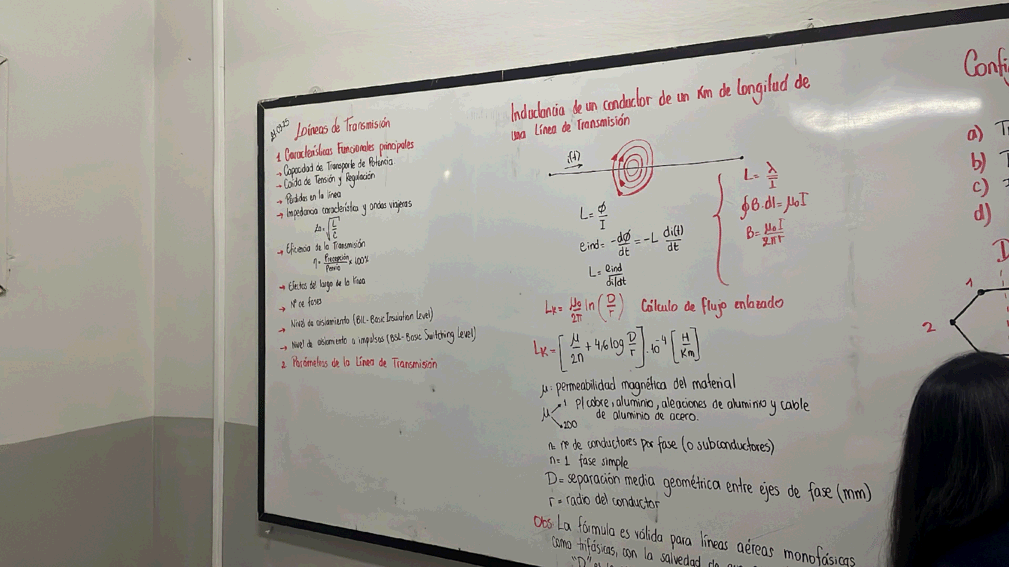 Líneas de Transmisión
1 Características Funcionales principales
→ Capacidad de Transporte de Potencia
→ Caída de Tensión y Regulación
→ Pérdidas en la línea
→ Impedancia característica y ondas viajeras
Zo=√(L/C)
→ Eficiencia de la Transmisión
η= Precepción/Penvío × 100%
→ Efectos del largo de la línea
→ Nº de fases
→ Nivel de aislamiento (BIL-Basic Insulation Level)
→ Nivel de aislamiento a impulsos (BSL-Basic Switching Level)
2 Parámetros de la Línea de Transmisión
Inductancia de un conductor de un Km de longitud de
una Línea de Transmisión
i(t)
L= ϕ/I
eind= -dϕ/dt = -L di(t)/dt
L= eind/di/dt
L= λ/I
∮B.dl=μ₀I
B= μ₀I/2πr
Lk= μ₀/2π ln(D/r) Cálculo de flujo enlazado
Lk= [μ/2n + 4,6 log D/r] . 10⁻⁴ [H/Km]
μ: permeabilidad magnética del material
μ 1 p/cobre, aluminio, aleaciones de aluminio y cable
de aluminio de acero.
200
n= nº de conductores por fase (o subconductores)
n= 1 fase simple
D= separación media geométrica entre ejes de fase (mm)
r= radio del conductor
Obs: La fórmula es válida para líneas aéreas monofásicas
como trifásicas, con la salvedad de que
"D"
Confi
a) T
b)
c)
d)
D
1
2